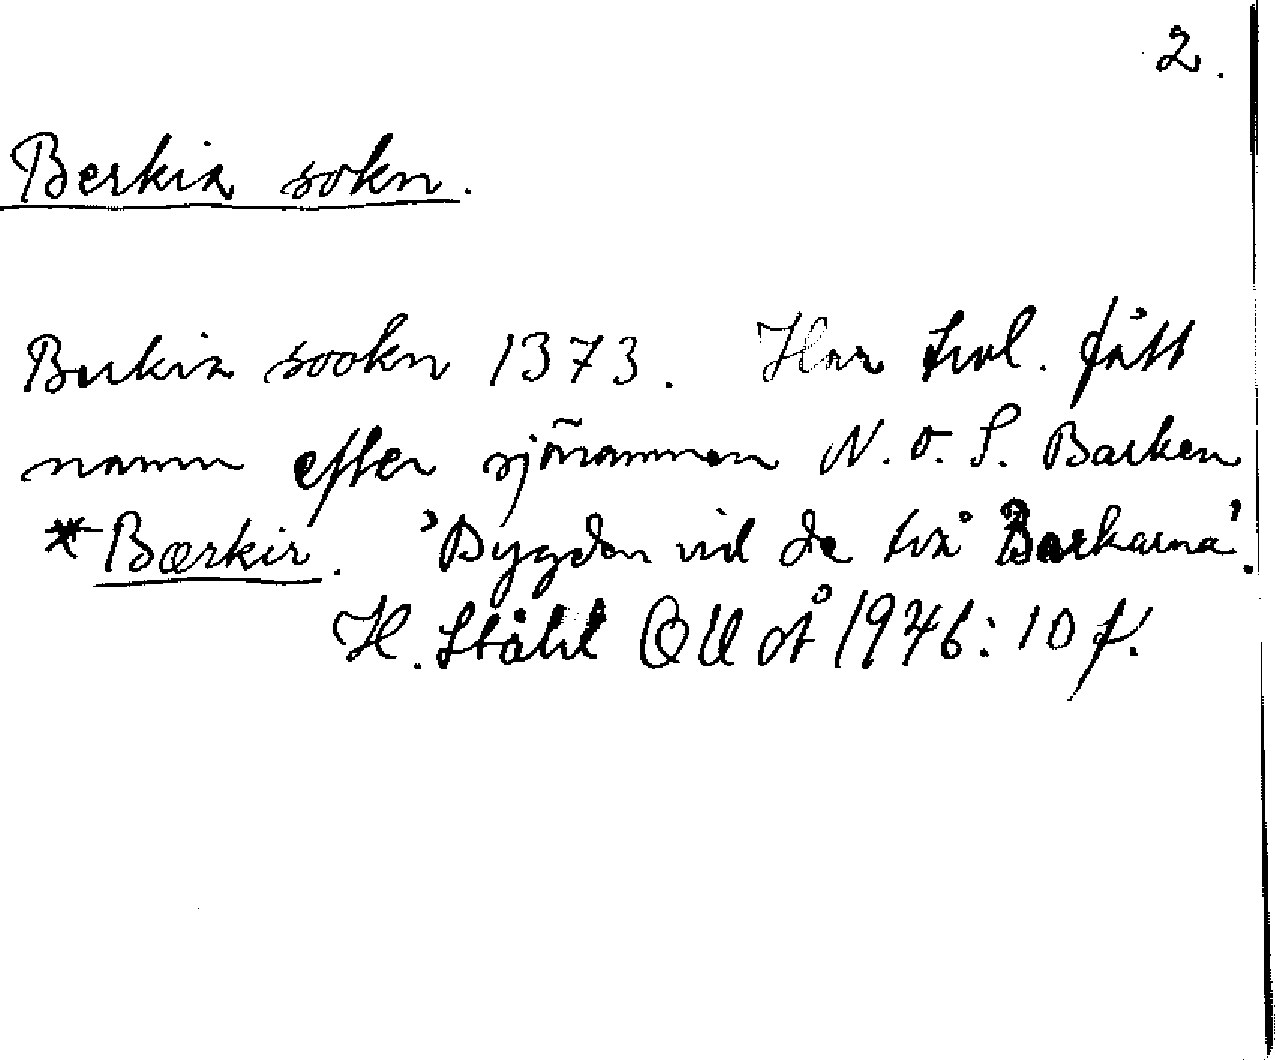 2.
Berkia sokn.
Berkia sookn 1373. Har trol. fått
namn efter sjönamnen N. o. S. Barken
*Bærkir. 'Bygden vid de två Barkarna'.
H. Ståhl OUÅ 1946: 10 f.